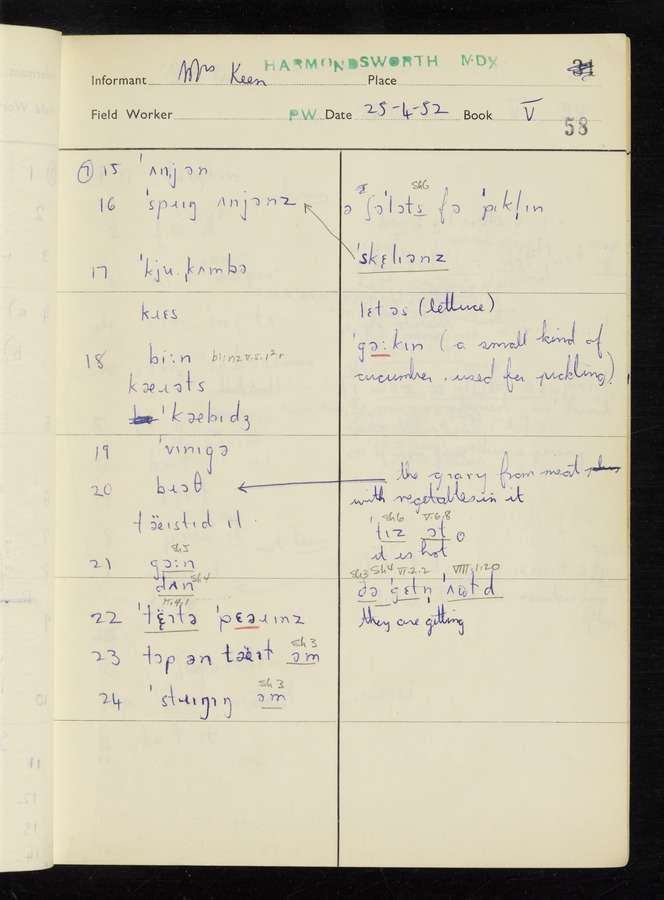 HARMONDSWORTH MDX
Informant Mrs Keen Place
31
Field Worker PW Date 25-4-52 Book V
58
⑦ 15 ˈʌnjən
16 ˈspɹɪŋ ʌnjənz
17 ˈkjuːˌkʌmbə
kɹɛs
18 biːn biːnz V.5.12 r
kæɹəts
ˈkæbɪdʒ
19 ˈvɪnɪgə
20 bɹɔθ
tɛ̈ɪstɪd ɪt
21 gɔːn sh5
dʌn sh4
VI.4.1
22 ˈtɛ̈ɪtə ˈpɛəɹɪnz
23 təp ən tɛ̈ɪt əm sh3
24 ˈstɹɪŋɪŋ əm sh3
sh6
ə ʃəˈlɔts fə ˈpɪklɪn
ˈskɛlɪənz
lɛtəs (lettuce)
ˈgəːkɪn (a small kind of
cucumber, used for pickling)
the gravy from meat
with vegetables in it
sh6 V.6.8
ˈtɪz ət
it is hot
sh3 sh4 VI.2.2 VIII.1.20
ðə ˈgɛtn̩
they are getting